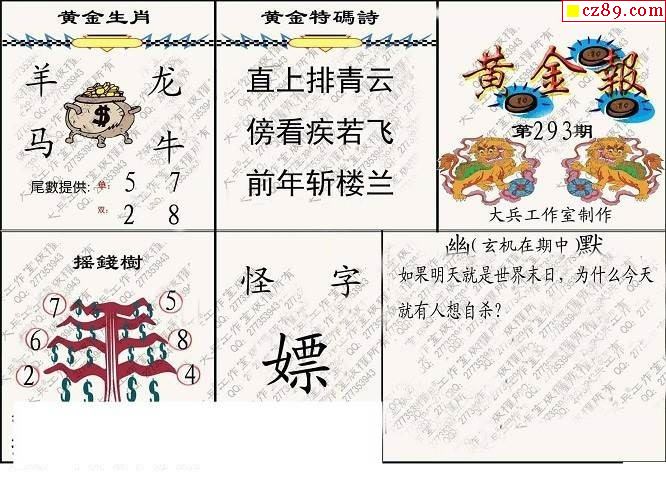 cz89.com
黄金生肖
羊 龙
$
马 牛
尾數提供: 单: 5 7
双: 2 8
黄金特碼詩
直上排青云
傍看疾若飞
前年斩楼兰
黄金報
第293期
大兵工作室制作
摇錢樹
7 5
6 8
2 4
怪字
嫖
幽(玄机在期中)默
如果明天就是世界末日，为什么今天
就有人想自杀?
大兵工作室版权所有
QQ: 277353943